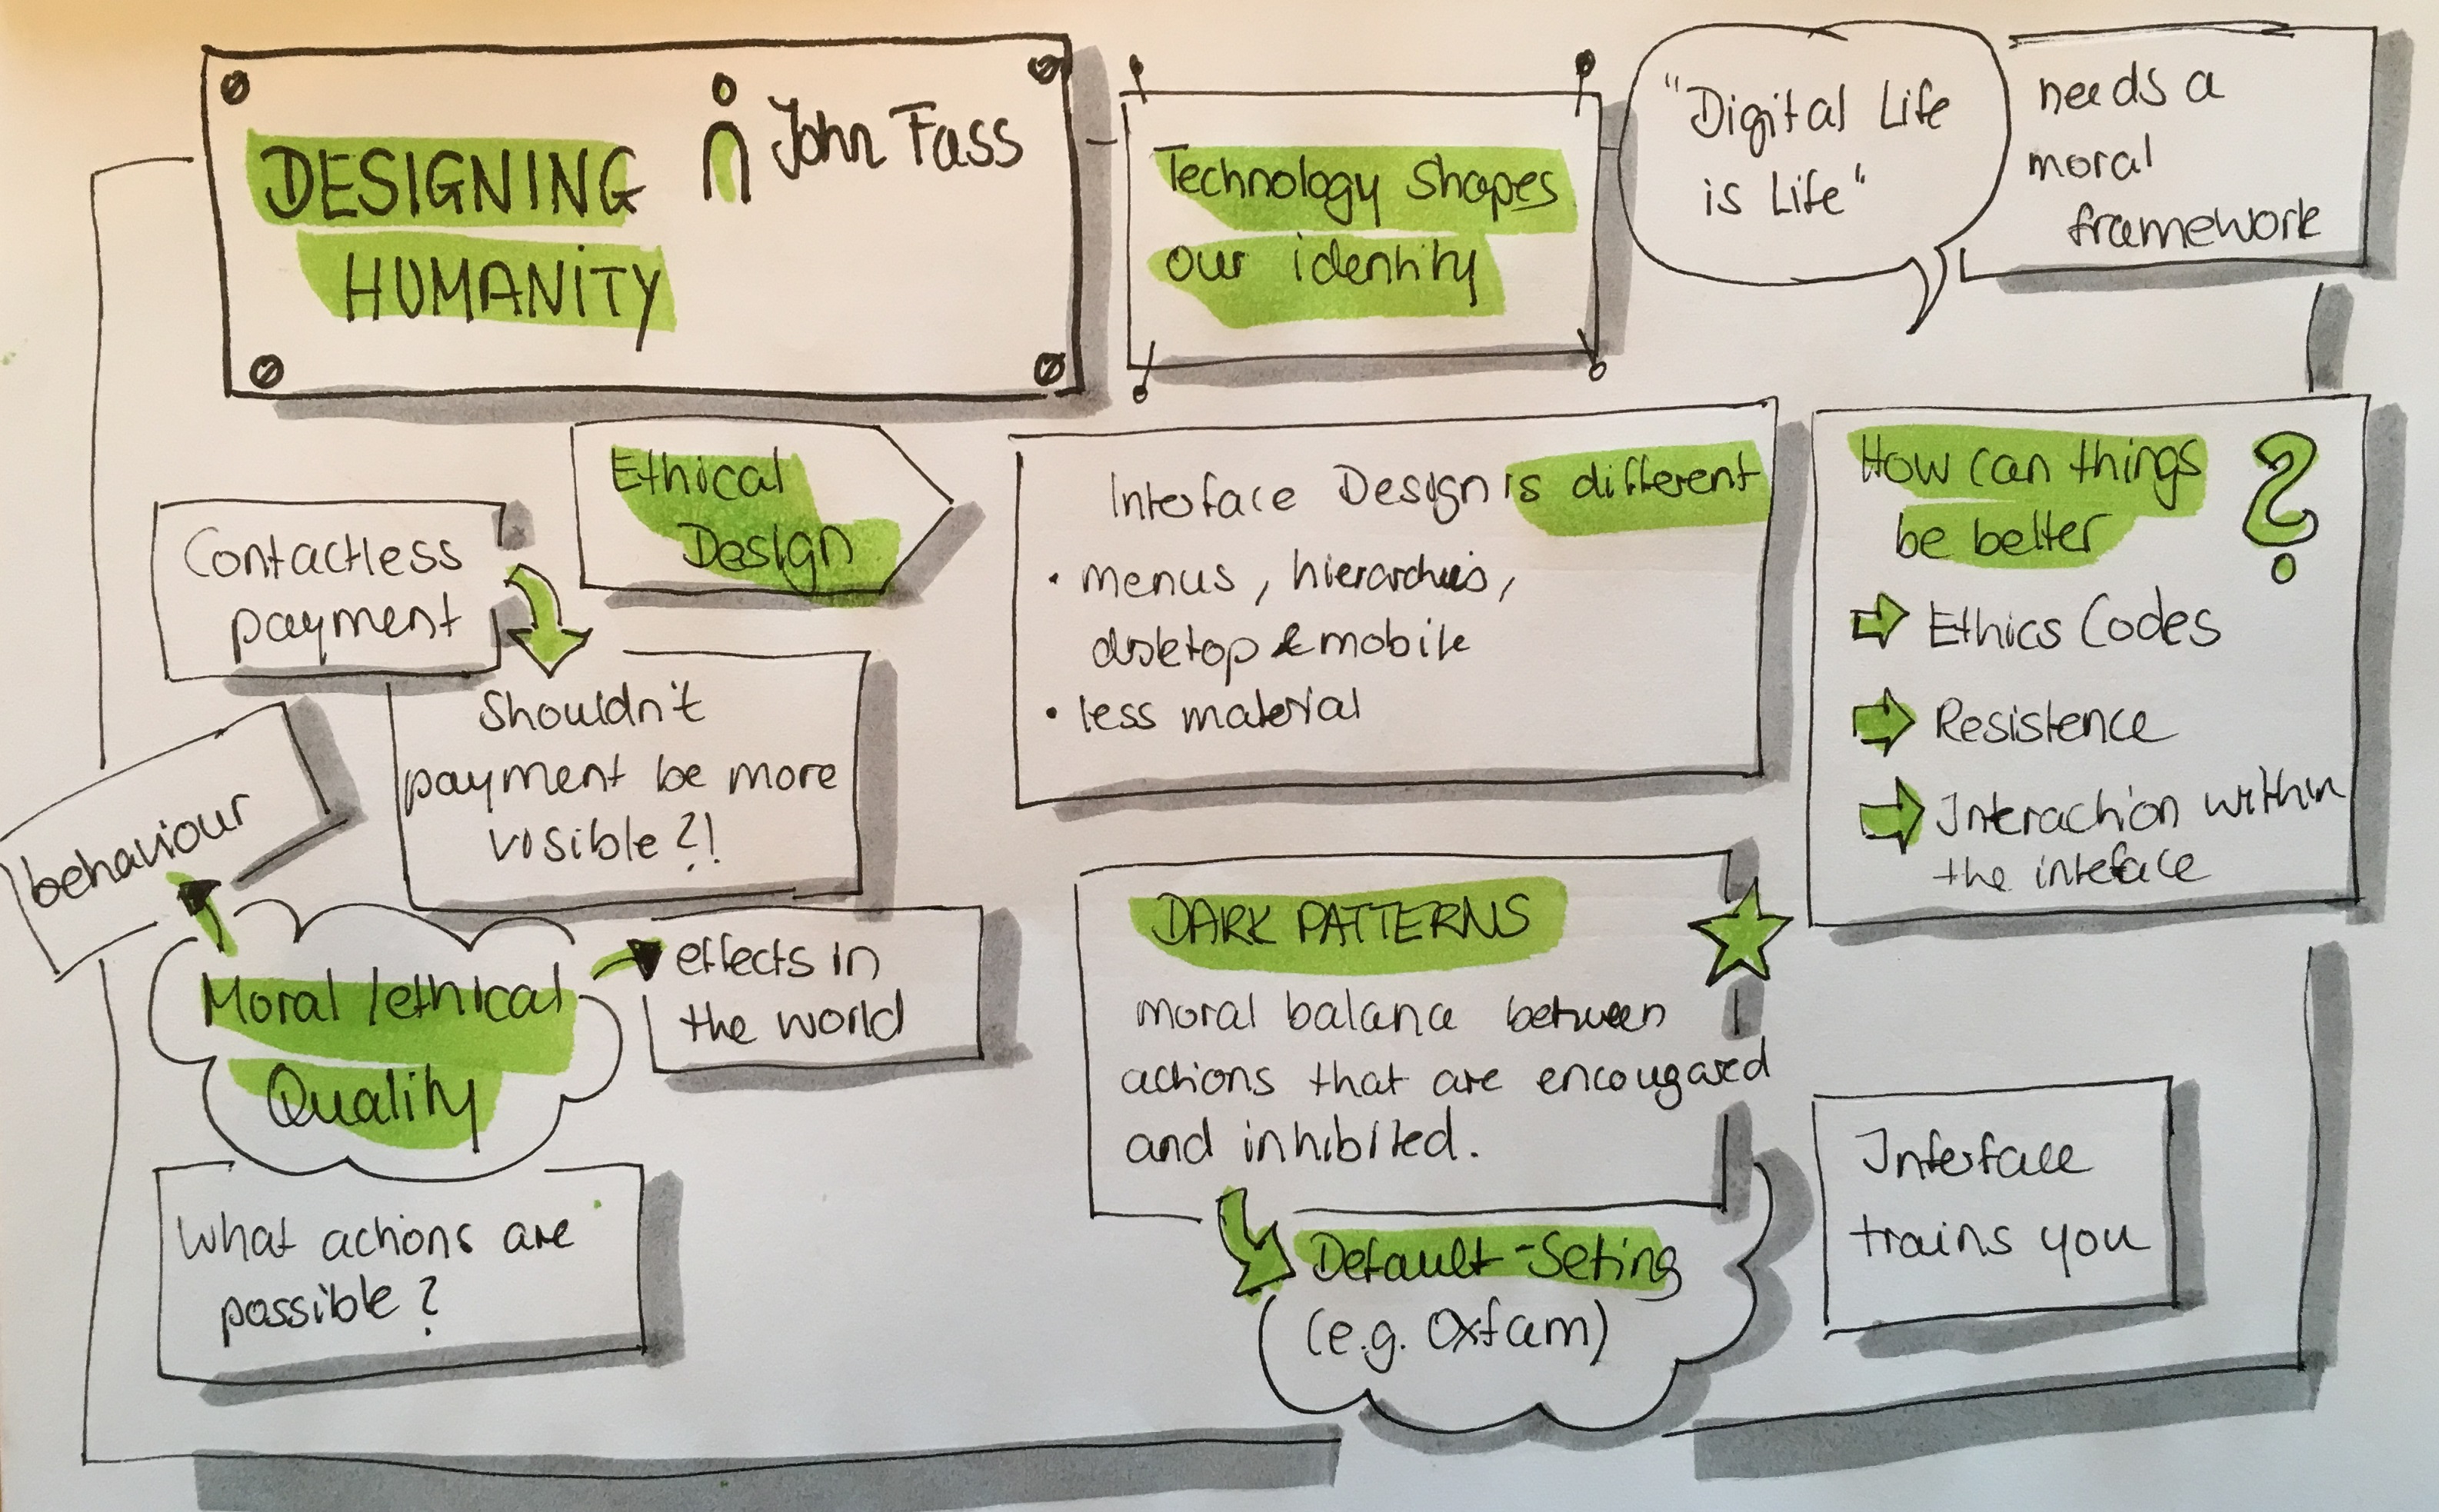 DESIGNING
HUMANITY
John Fass
Technology shapes
our identity
"Digital Life
is Life"
needs a
moral
framework
Ethical
Design
Contactless
payment
Shouldn't
payment be more
visible?!
Interface Design is different
• menus, hierarchies,
desktop & mobile
• less material
How can things
be better ?
Ethics Codes
Resistence
Interaction within
the inteface
behaviour
Moral / ethical
Quality
effects in
the world
What actions are
possible?
DARK PATTERNS
moral balance between
actions that are encougared
and inhibited.
Default-Seting
(e.g. Oxfam)
Interface
trains you